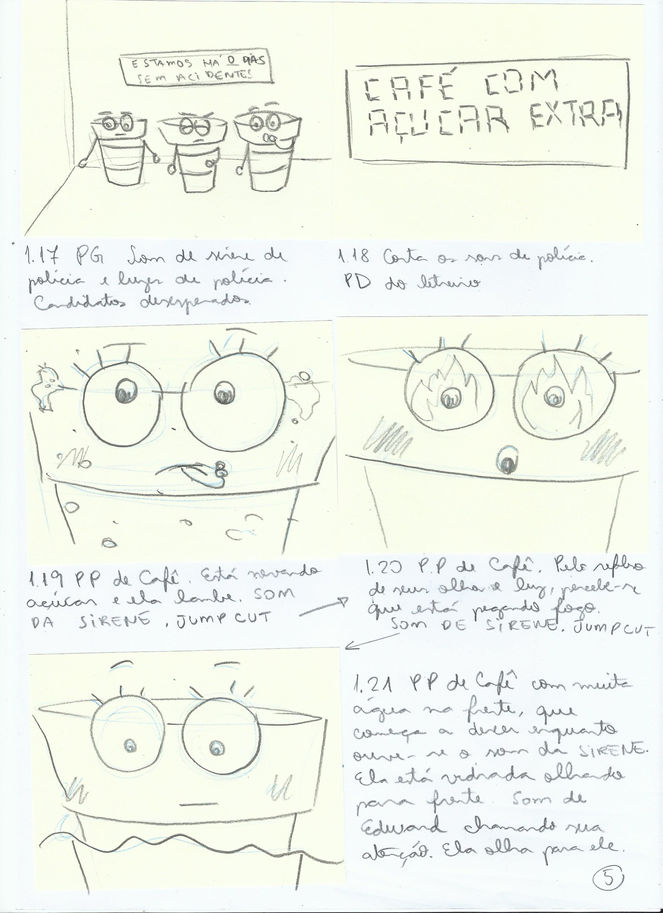 ESTAMOS HÁ 0 DIAS
SEM ACIDENTES!
CAFÉ COM
AÇUCAR EXTRA
1.17 PG Som de sirene de
polícia e luzes de polícia.
Candidatos desesperados
1.18 Corta os sons de polícia.
PD do letreiro
1.19 PP de Café. Está nevando
açúcar e ela lambe. SOM
DA SIRENE, JUMP CUT
1.20 P.P de Café. Pelo reflexo
de seus olhos e luz, percebe-se
que está pegando fogo.
SOM DE SIRENE. JUMPCUT
1.21 PP de Café com muita
água na frente, que
começa a descer enquanto
ouve-se o som da SIRENE.
Ela está vidrada olhando
para frente. Som de
Edward chamando sua
atenção. Ela olha para ele.
5